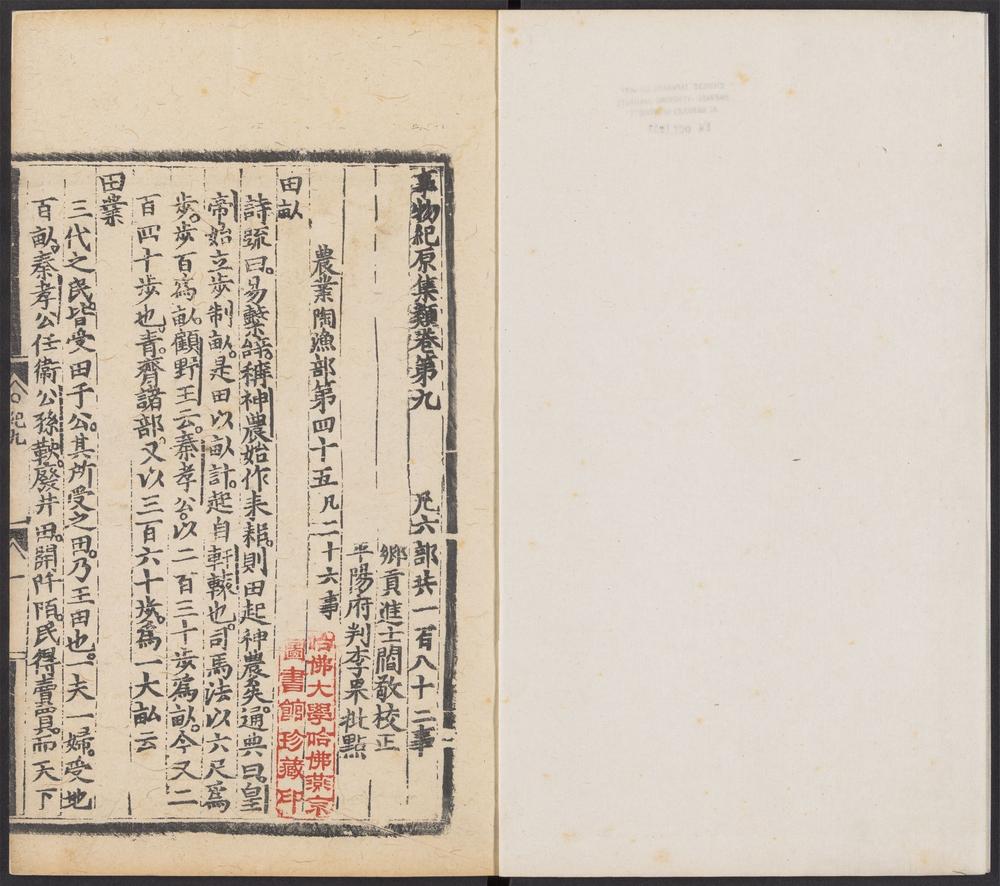 事物紀原集類卷第九　凡六部共一百八十二事
鄉貢進士閻敬校正
平陽府判李果批點
農業陶漁部第四十五凡二十六事
田畝
詩疏曰。易繫辭稱神農始作耒耜。則田起神農矣。通典曰。皇
帝始立步制畝。是田以畝計。起自軒轅也。司馬法以六尺爲
步。步百爲畝。顧野王云。秦孝公以二百三十步爲畝。今又二
百四十步也。青齊諸部。又以三百六十步。爲一大畝云
田業
三代之民。皆受田于公。其所受之田。乃王田也。一夫一婦。受地
百畝。秦孝公任衞公孫鞅。廢井田。開阡陌。民得賣買。而天下
紀九
一
哈佛大學哈佛燕京
圖書館珍藏印